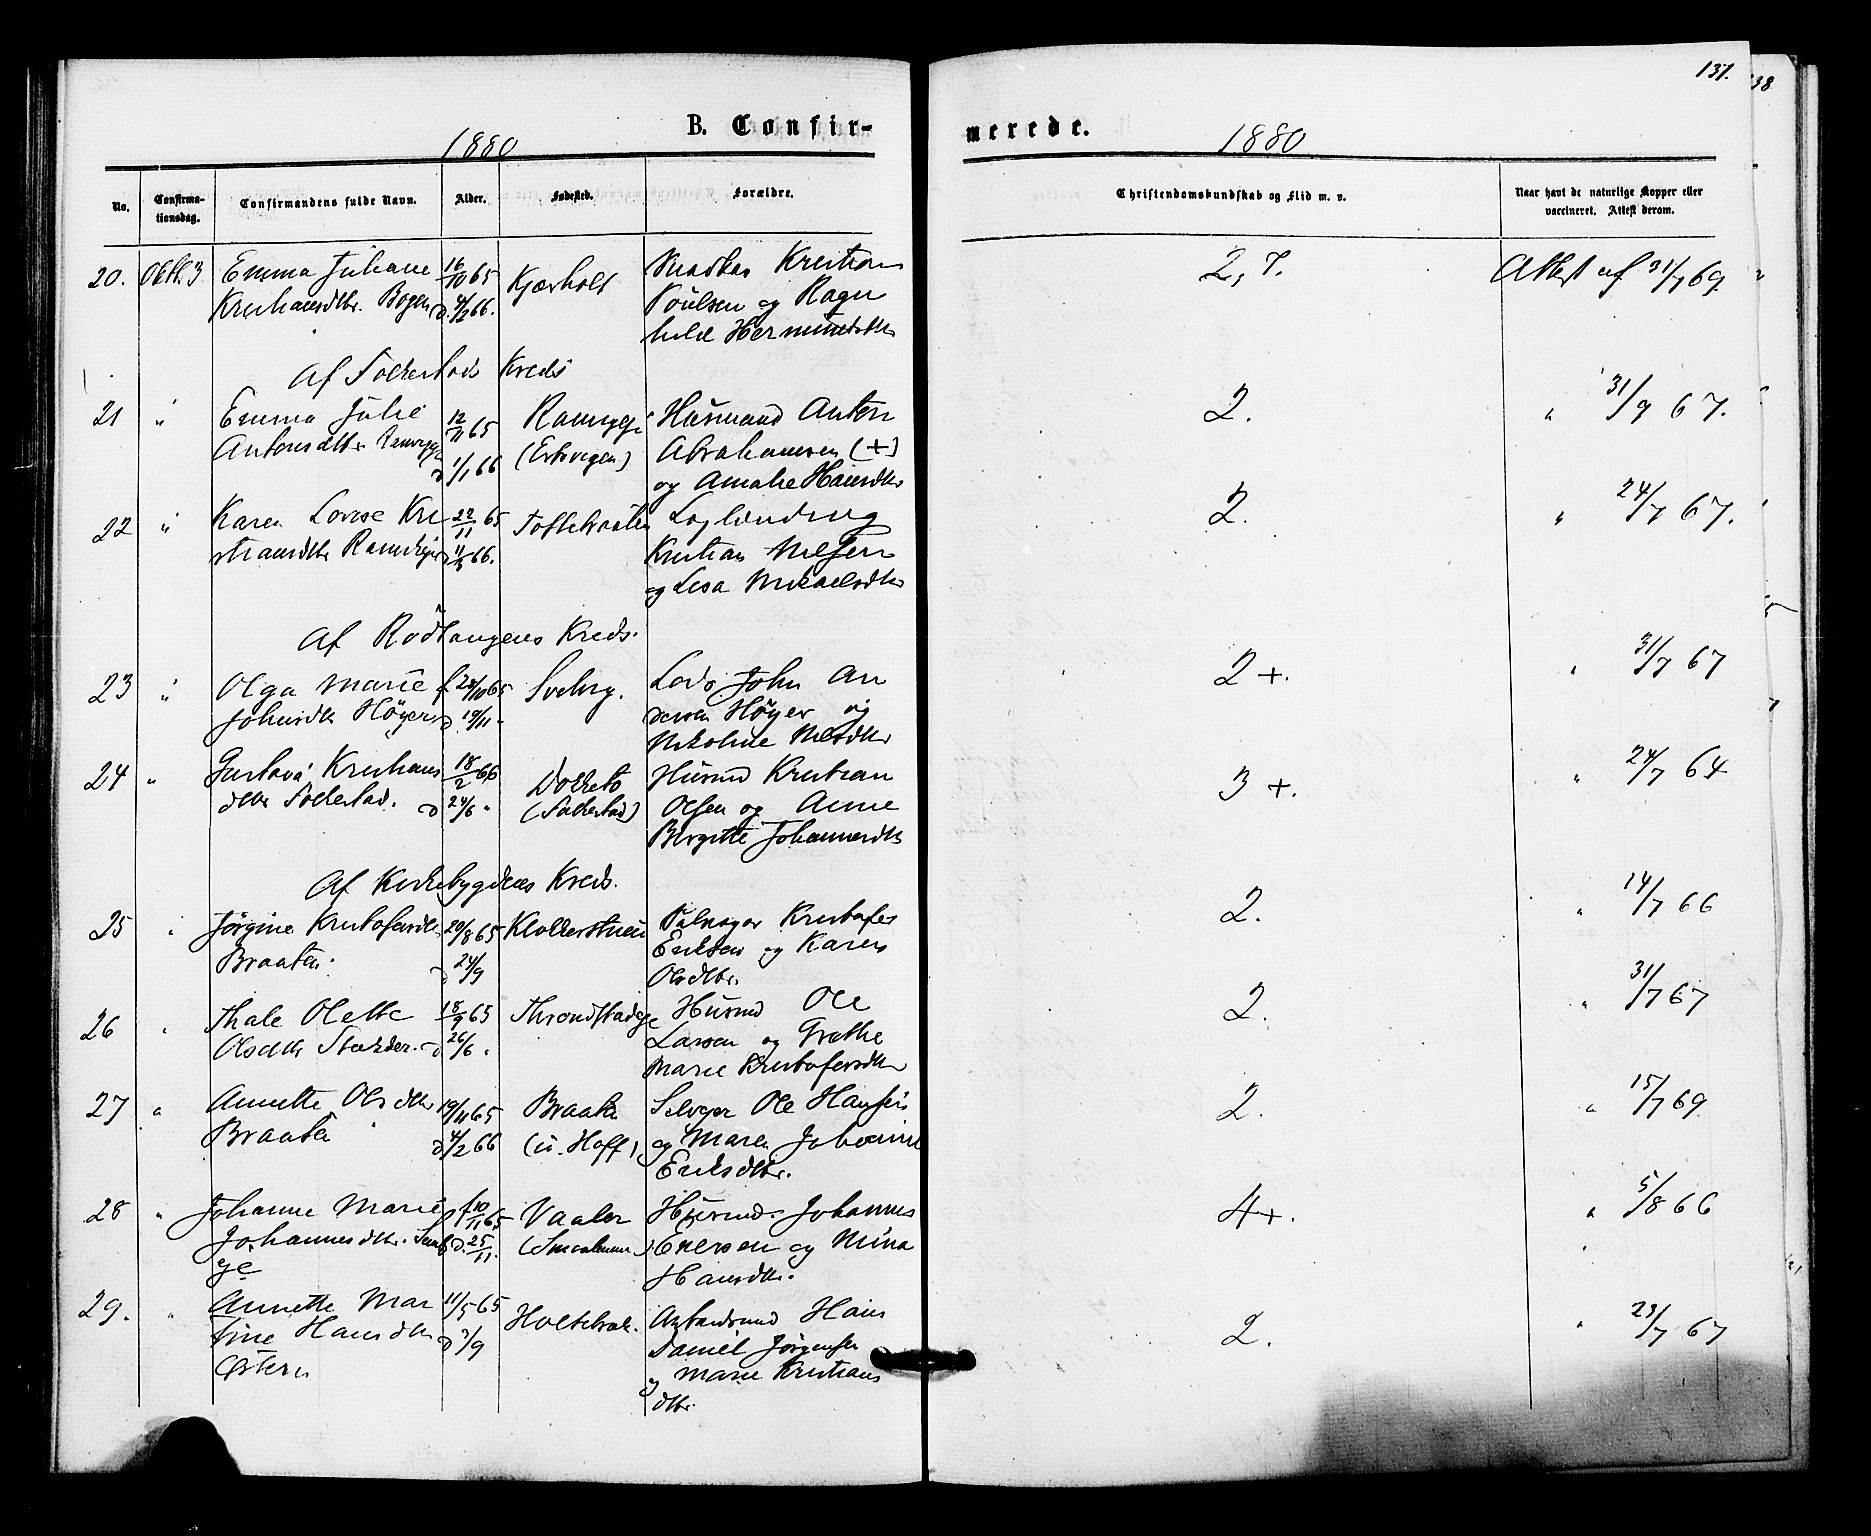 137.
38
B. Confir-
merede.
1880
1880
No.
Confirma-
tionsdag.
Confirmandens fulde Navn.
Alder.
Fødested.
Forældre.
Christendomskundskab og Flid m. v.
Naar havt de naturlige Kopper eller
vaccineret. Attest derom.
20. Oktb. 3 Emma Juliane 16/10 65 Kjærholt Kristian 2, 7. Attest af 31/7 69.
Kristiansdtr. Bogen d. 4/2 66. Poulsen og Ragn
hild Hermundsdtr
Af Folkestads Kreds
21 " Emma Julie 12/11 65 Husmand Anton 2. " 31/9 67.
Antonsdtr d 1/1 66 Abrahamsen (+)
og Amalie Hansdtr
22 " Karen Lovise Kri 22/11 65 Toftebraaten 2. " 24/7 67.
stiansdtr 66. Kristian Nilsen
og Lisa Mikaelsdtr
Af Rødtangens Kreds.
23 " Olga Marie f 24/10 65 Solberg. Lods John An 2 +. " 31/7 67
Johnsdtr Høyer d 19/11 " dersen Høyer og
Nikoline Nilsdtr
24 " Gustava Kristians 18/2 66 Husmd Kristian 3 +. " 24/7 64
dtr Folkestad. d 24/6 " (Folkestad) Olsen og Anne
Birgitte Johannesdtr
Af Kirkebygdens Kreds.
25 " Jørgine Kristofersdtr 20/8 65 Klokkerstuen Kristofer 2. " 14/7 66
Braaten. d 24/9 Eriksen og Karen
Olsdtr.
26 " Thale Olette 18/9 65 Husmd Ole 2. " 31/7 67
Olsdtr d 26/6 " Larsen og Grethe
Marie Kristofersdtr
27 " Annette Olsdtr 19/11 65 Braaten Selveger Ole Hansen 2. " 15/7 69
Braaten d 4/2 66 (u. Hoff) og Maren Johanne
Eriksdtr.
28 " Johanne Marie f 10/11 65 Vaaler Husmd. Johannes 4+. " 5/8 66
Johannesdtr. d. 25/11. (Smaalenene) Enersen og Mina
Hansdtr.
29. " Annette Mar 11/5 65 Holtebrak. Hans 2. " 23/7 67
tine Hansdtr d 3/9 Daniel Jørgensen
Østern og Marie Kristians
dtr.